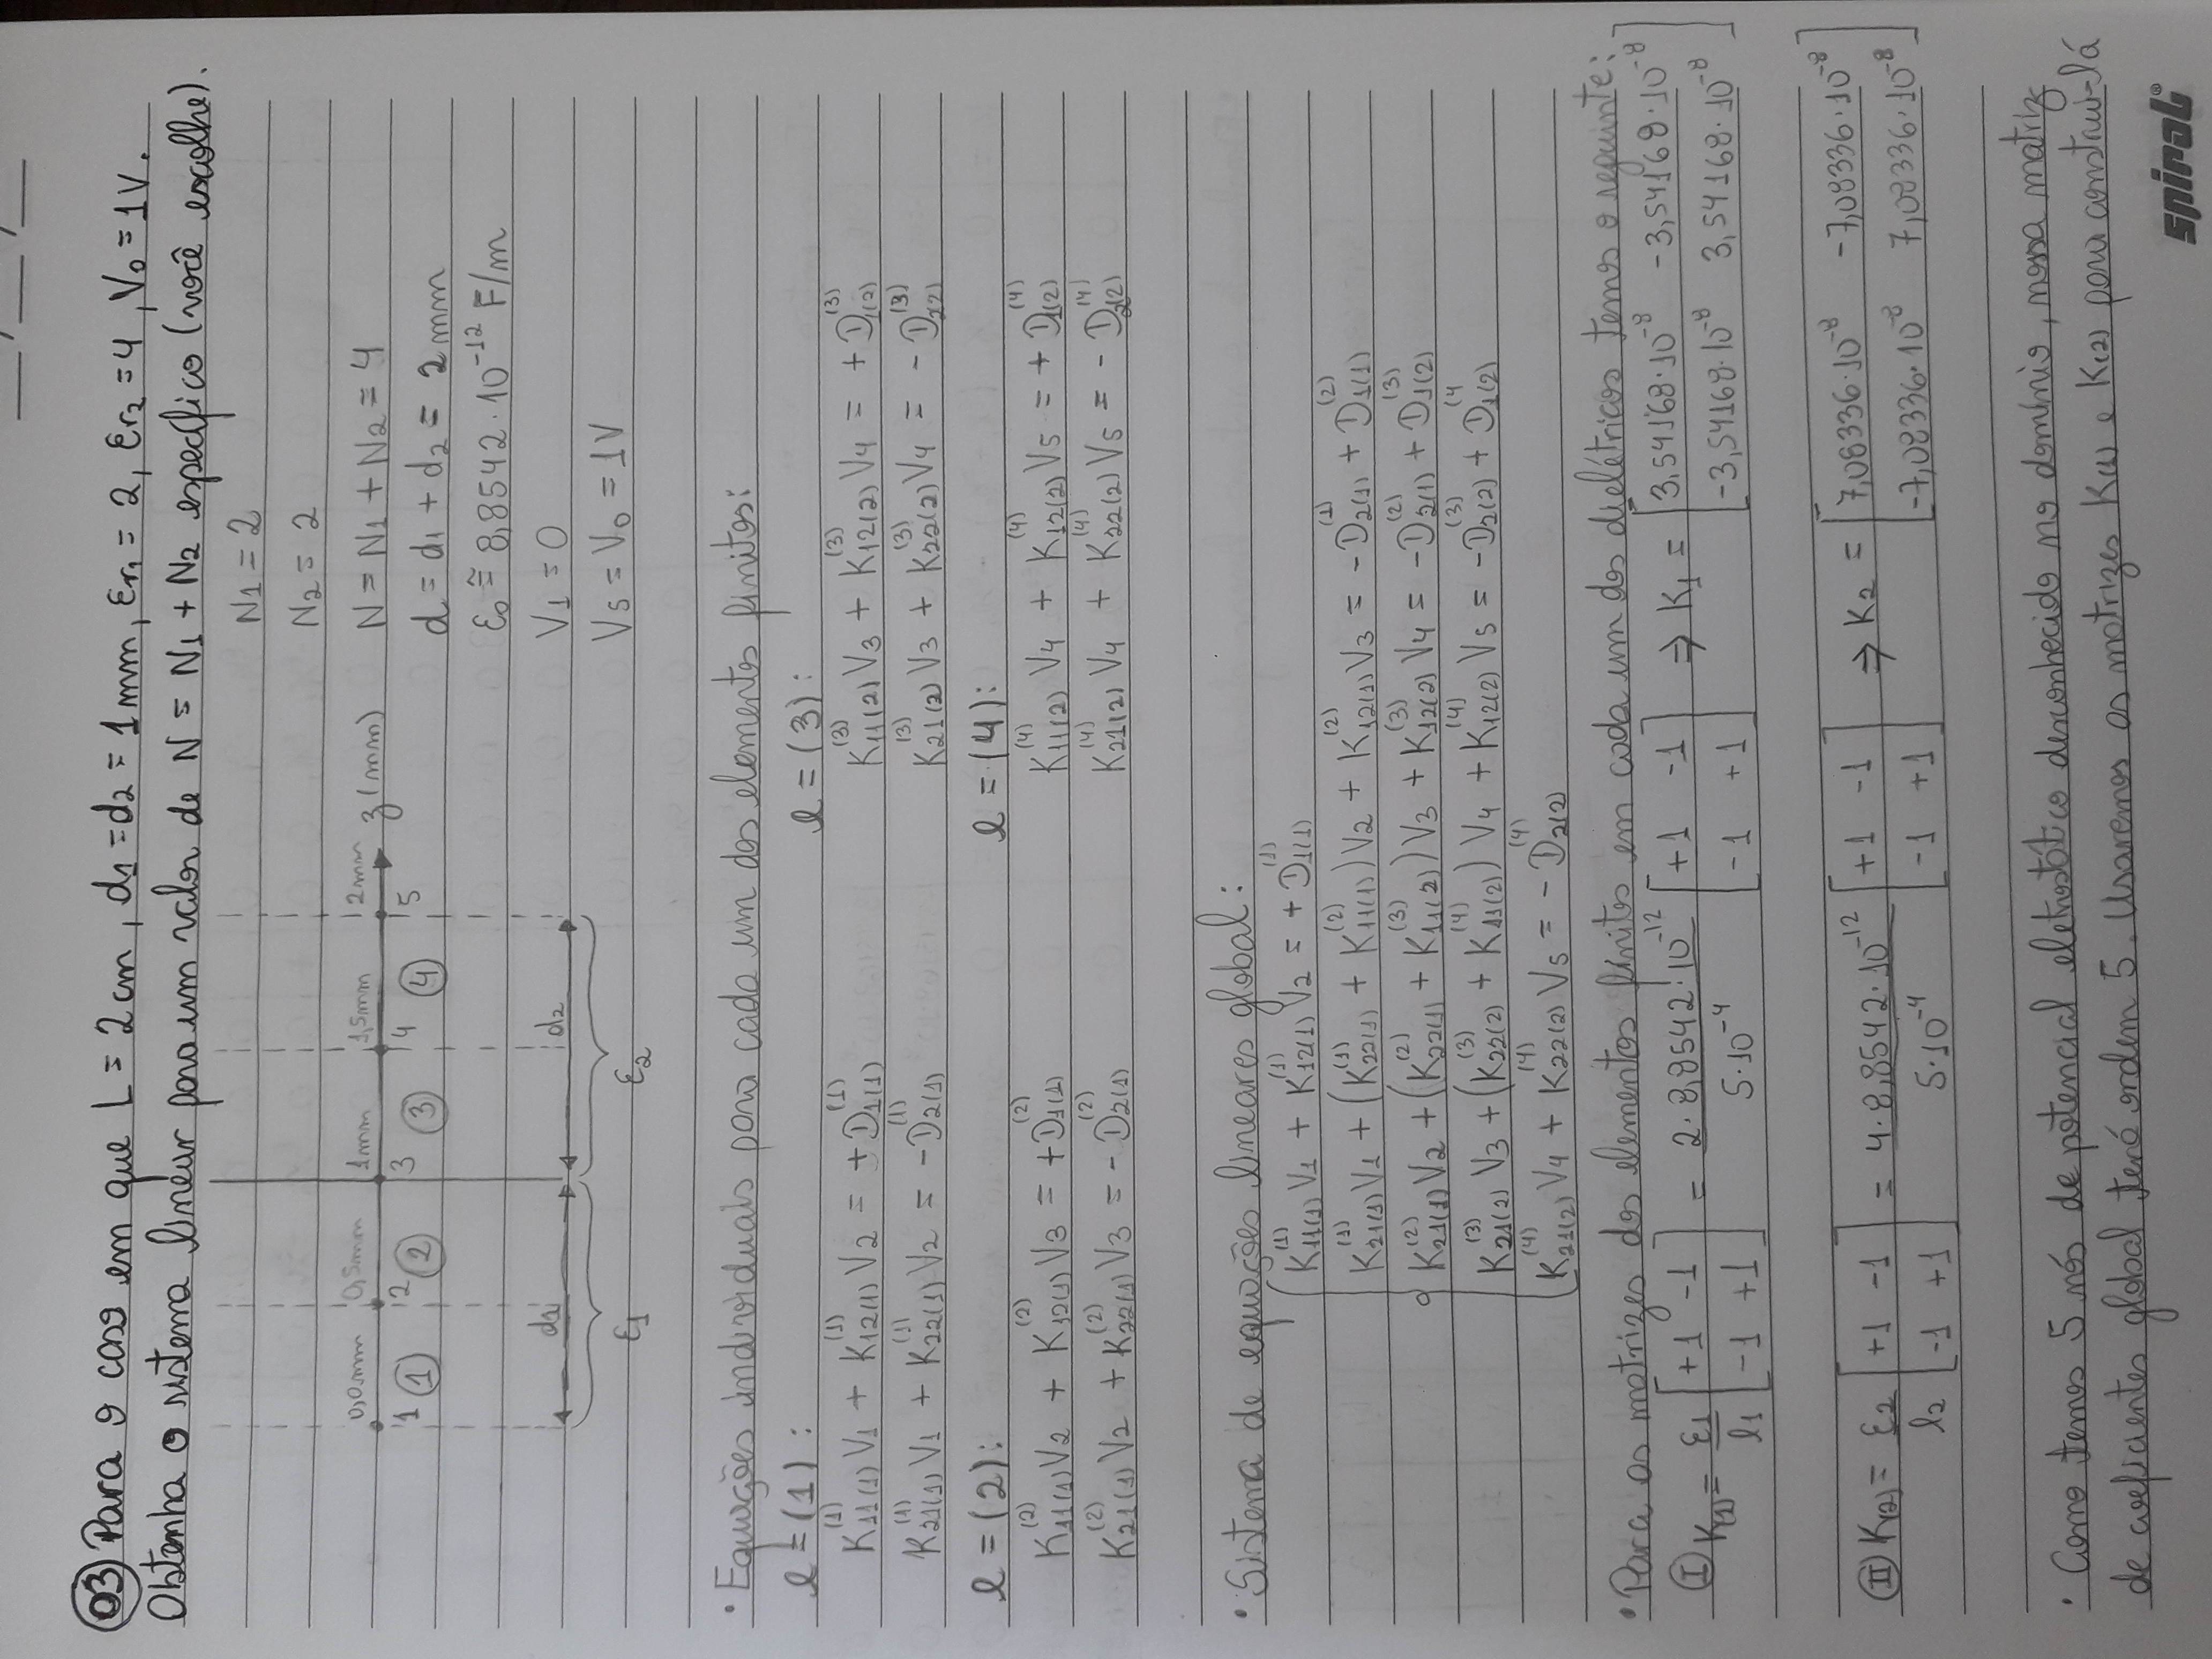 ___/___/___
03 Para o caso em que L = 2cm, d1 = d2 = 1mm, Er1 = 2, Er2 = 4, V0 = 1V.
Obtenha o sistema linear para um valor de N = N1 + N2 específico (você escolhe).
N1 = 2
N2 = 2
0,0mm 0,5mm 1mm 1,5mm 2mm z(mm)
N = N1 + N2 = 4
1 ① 2 ② 3 ③ 4 ④ 5
d = d1 + d2 = 2mm
ε0 ≅ 8,8542·10⁻¹² F/m
d1 d2
V1 = 0
ε1 ε2
V5 = V0 = 1V
• Equações individuais para cada um dos elementos finitos:
l = (1): l = (3):
K11(1)^(1) V1 + K12(1)^(1) V2 = +D1(1)^(1) K11(2)^(3) V3 + K12(2)^(3) V4 = +D1(2)^(3)
K21(1)^(1) V1 + K22(1)^(1) V2 = -D2(1)^(1) K21(2)^(3) V3 + K22(2)^(3) V4 = -D2(2)^(3)
l = (2): l = (4):
K11(1)^(2) V2 + K12(1)^(2) V3 = +D1(1)^(2) K11(2)^(4) V4 + K12(2)^(4) V5 = +D1(2)^(4)
K21(1)^(2) V2 + K22(1)^(2) V3 = -D2(1)^(2) K21(2)^(4) V4 + K22(2)^(4) V5 = -D2(2)^(4)
• Sistema de equações lineares global:
K11(1)^(1) V1 + K12(1)^(1) V2 = +D1(1)^(1)
K21(1)^(1) V1 + (K22(1)^(1) + K11(1)^(2)) V2 + K12(1)^(2) V3 = -D2(1)^(1) + D1(1)^(2)
K21(1)^(2) V2 + (K22(1)^(2) + K11(2)^(3)) V3 + K12(2)^(3) V4 = -D2(1)^(2) + D1(2)^(3)
K21(2)^(3) V3 + (K22(2)^(3) + K11(2)^(4)) V4 + K12(2)^(4) V5 = -D2(2)^(3) + D1(2)^(4
K21(2)^(4) V4 + K22(2)^(4) V5 = -D2(2)^(4)
• Para as matrizes dos elementos finitos em cada um dos dielétricos temos o seguinte:
Ⓘ K(1) = ε1/l1 [+1 -1; -1 +1] = 2·8,8542·10⁻¹²/5·10⁻⁴ [+1 -1; -1 +1] ⇒ K1 = [3,54168·10⁻⁸ -3,54168·10⁻⁸; -3,54168·10⁻⁸ 3,54168·10⁻⁸]
Ⅱ K(2) = ε2/l2 [+1 -1; -1 +1] = 4·8,8542·10⁻¹²/5·10⁻⁴ [+1 -1; -1 +1] ⇒ K2 = [7,08336·10⁻⁸ -7,08336·10⁻⁸; -7,08336·10⁻⁸ 7,08336·10⁻⁸]
• Como temos 5 nós de potencial eletrostático desconhecido no domínio, nossa matriz
de coeficientes global terá ordem 5. Usaremos as matrizes K(1) e K(2) para construí-lá
spiral®